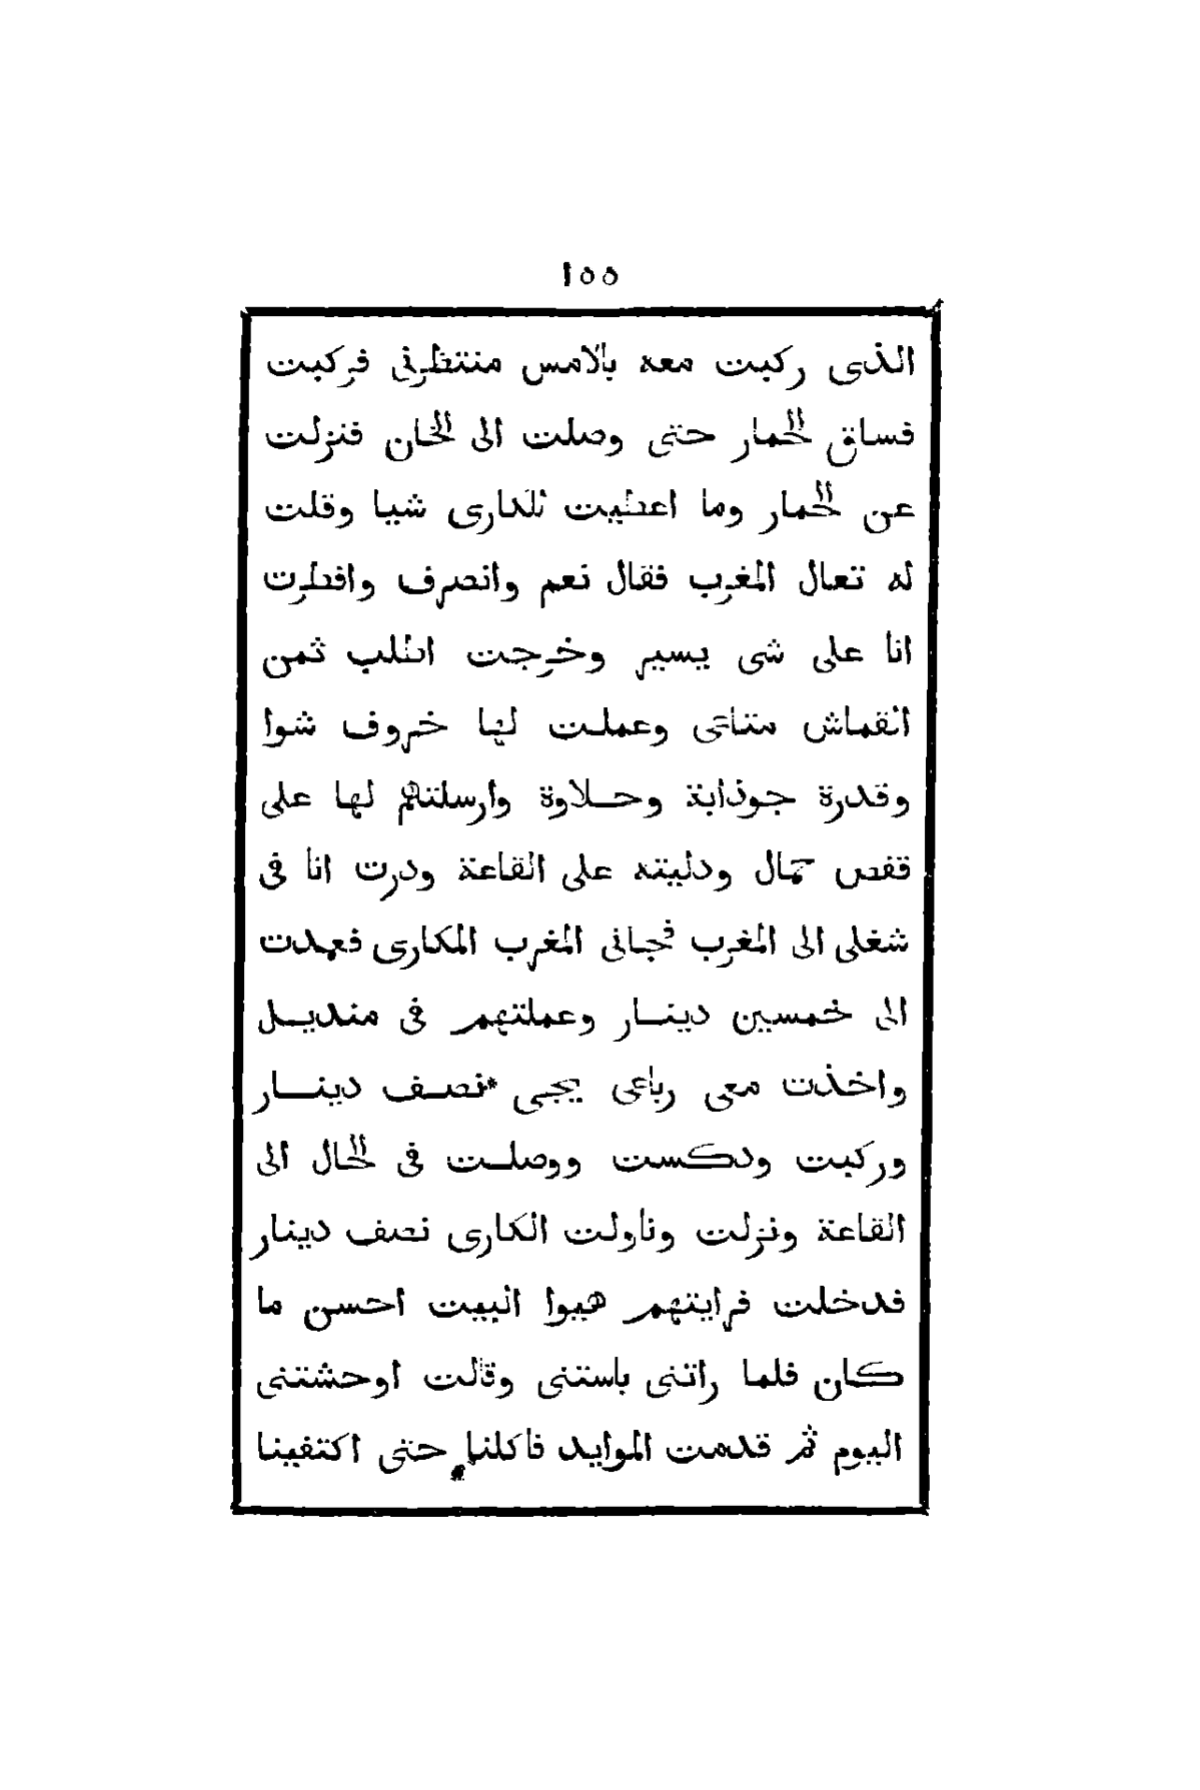 ١٥٥
الذى ركبت معه بالامس منتظرنى فركبت
فساق الحمار حتى وصلت الى الخان فنزلت
عن الحمار وما اعطيت للكارى شيا وقلت
له تعال المغرب فقال نعم وانصرف وافطرت
انا على شى يسير وخرجت اطلب ثمن
القماش متاعى وعملت لها خروف شوا
وقدرة جوذابة وحلاوة وارسلتهم لها على
قفص حمال ودليته على القاعة ودرت انا فى
شغلى الى المغرب فجانى المغرب المكارى فعمدت
الى خمسين دينار وعملتهم فى منديل
واخذت معى رباعى يجى نصف دينار
وركبت ودكست ووصلت فى الحال الى
القاعة ونزلت وناولت الكارى نصف دينار
فدخلت فرايتهم هيوا البيت احسن ما
كان فلما راتنى باستنى وقالت اوحشتنى
اليوم ثم قدمت الموايد فاكلنا حتى اكتفينا